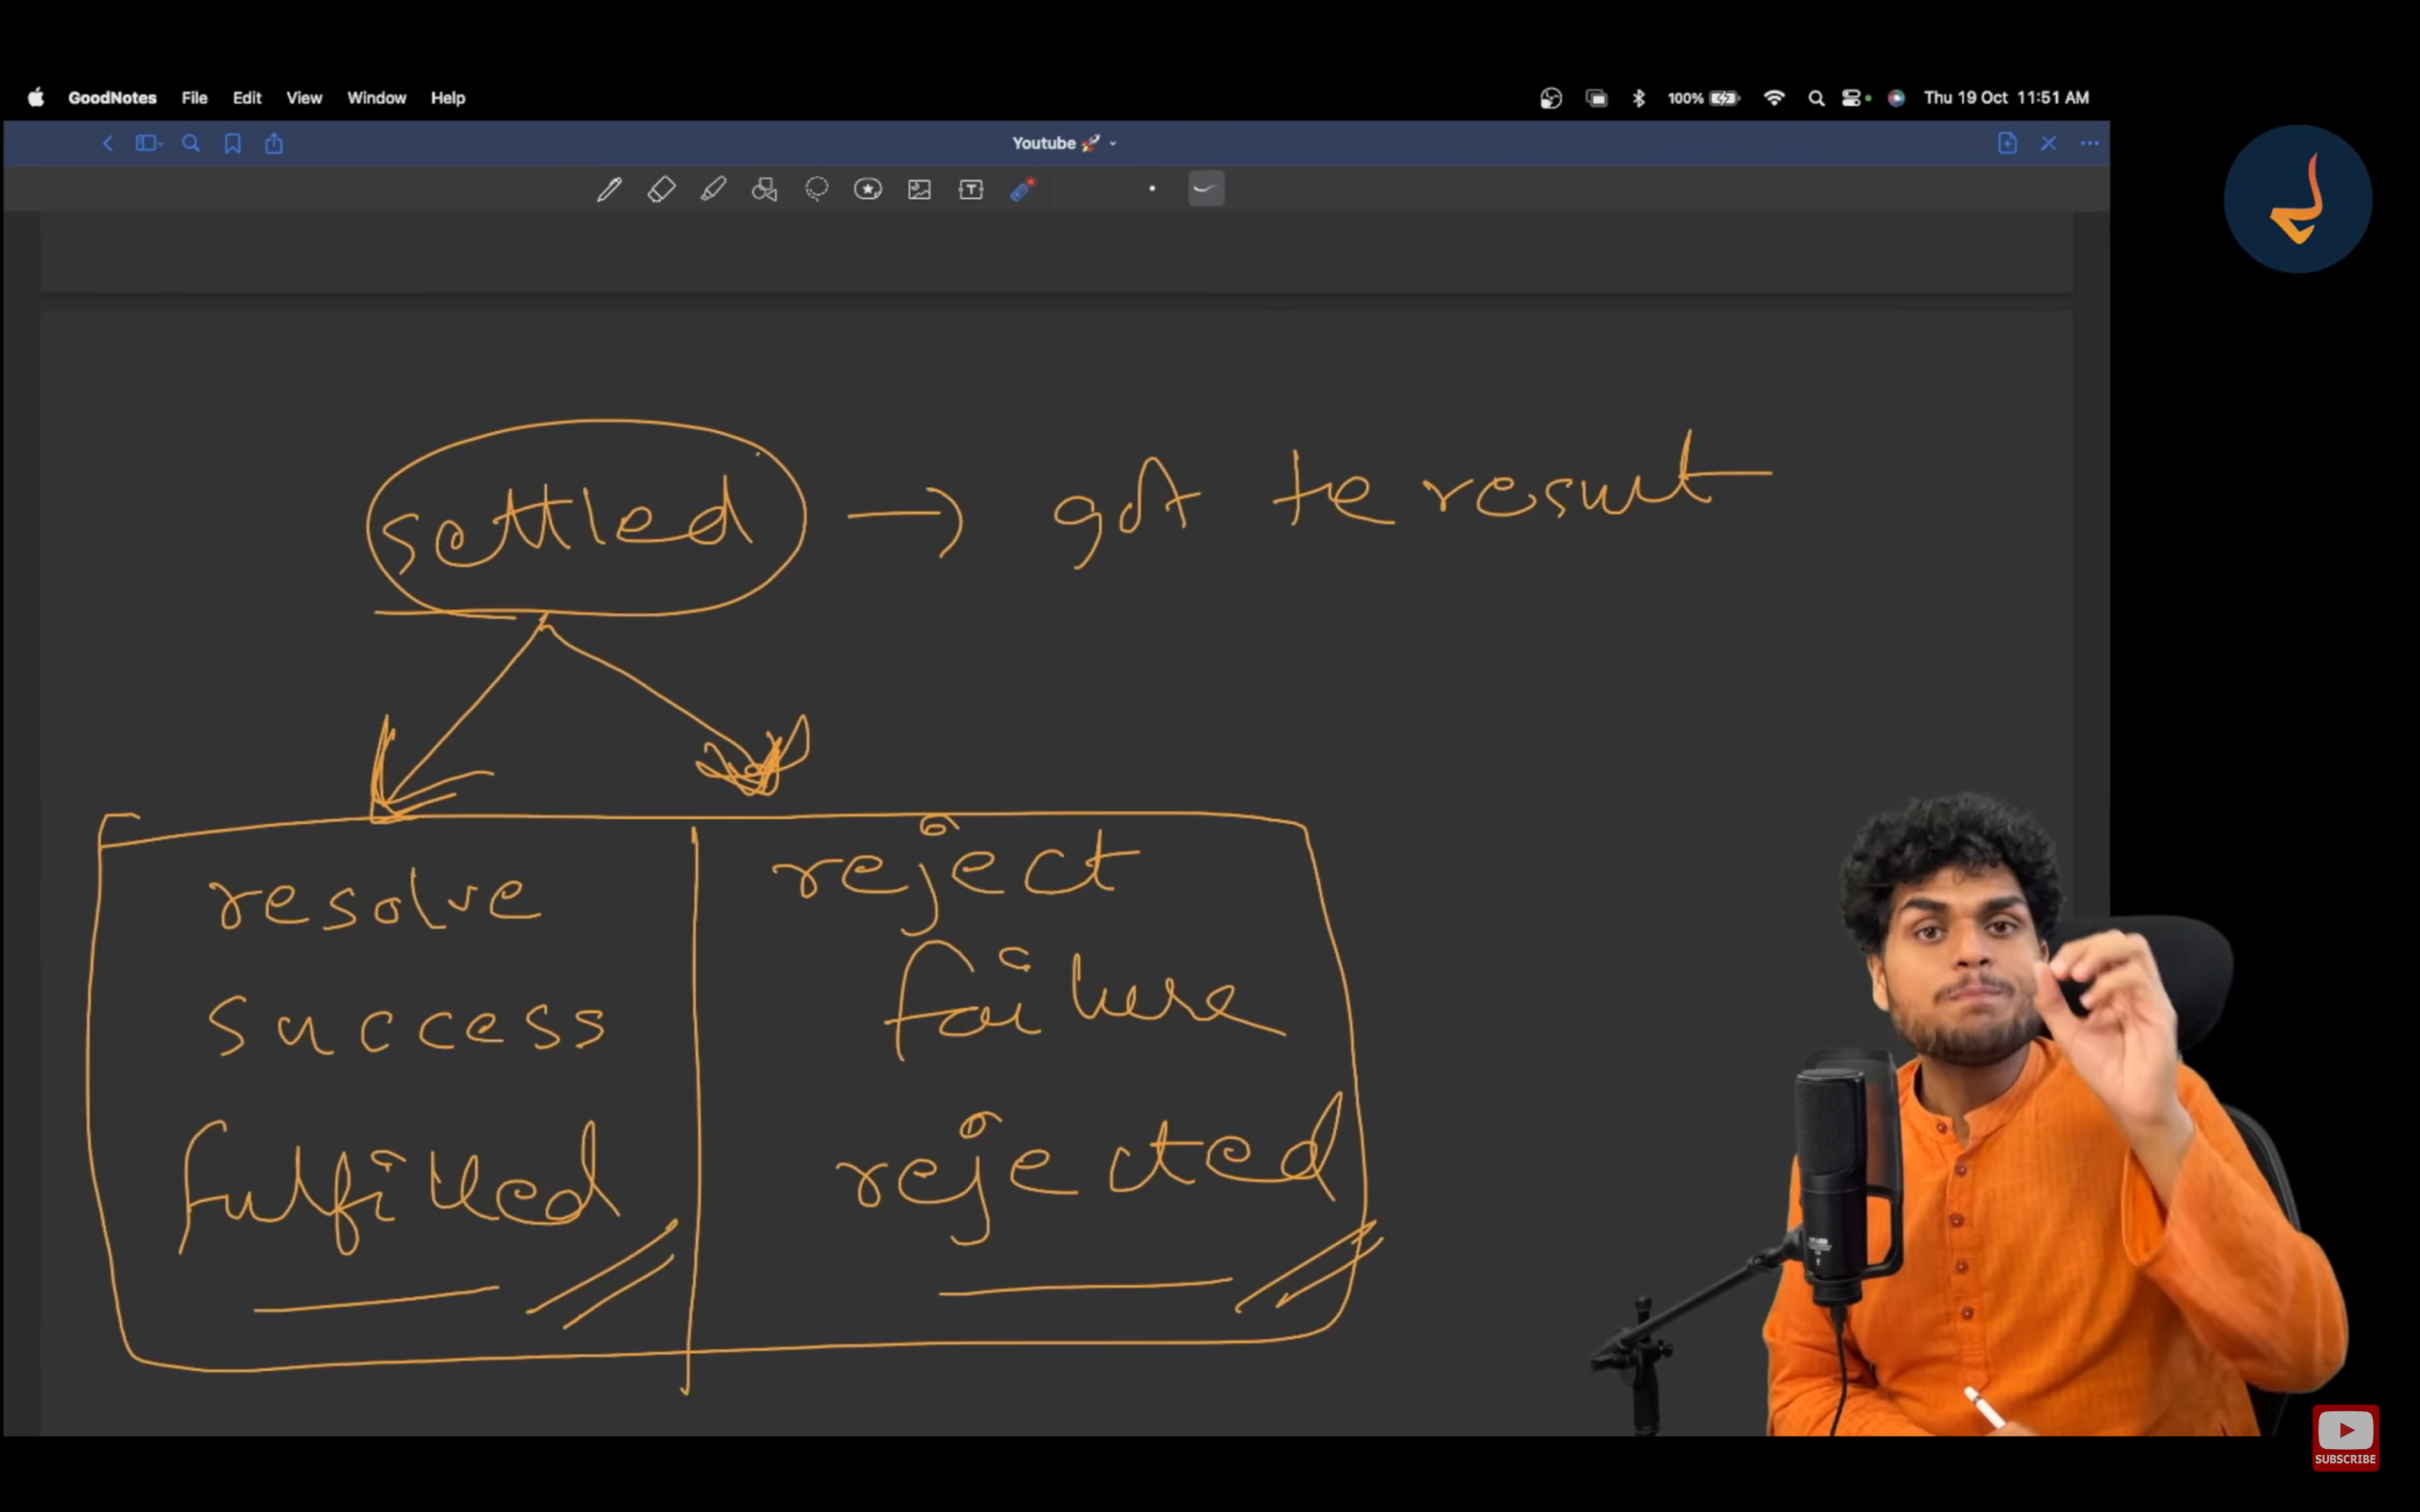 GoodNotes File Edit View Window Help 100% Thu 19 Oct 11:51 AM
Youtube 🚀
settled → got te result
resolve reject
success failure
fulfilled rejected
SUBSCRIBE